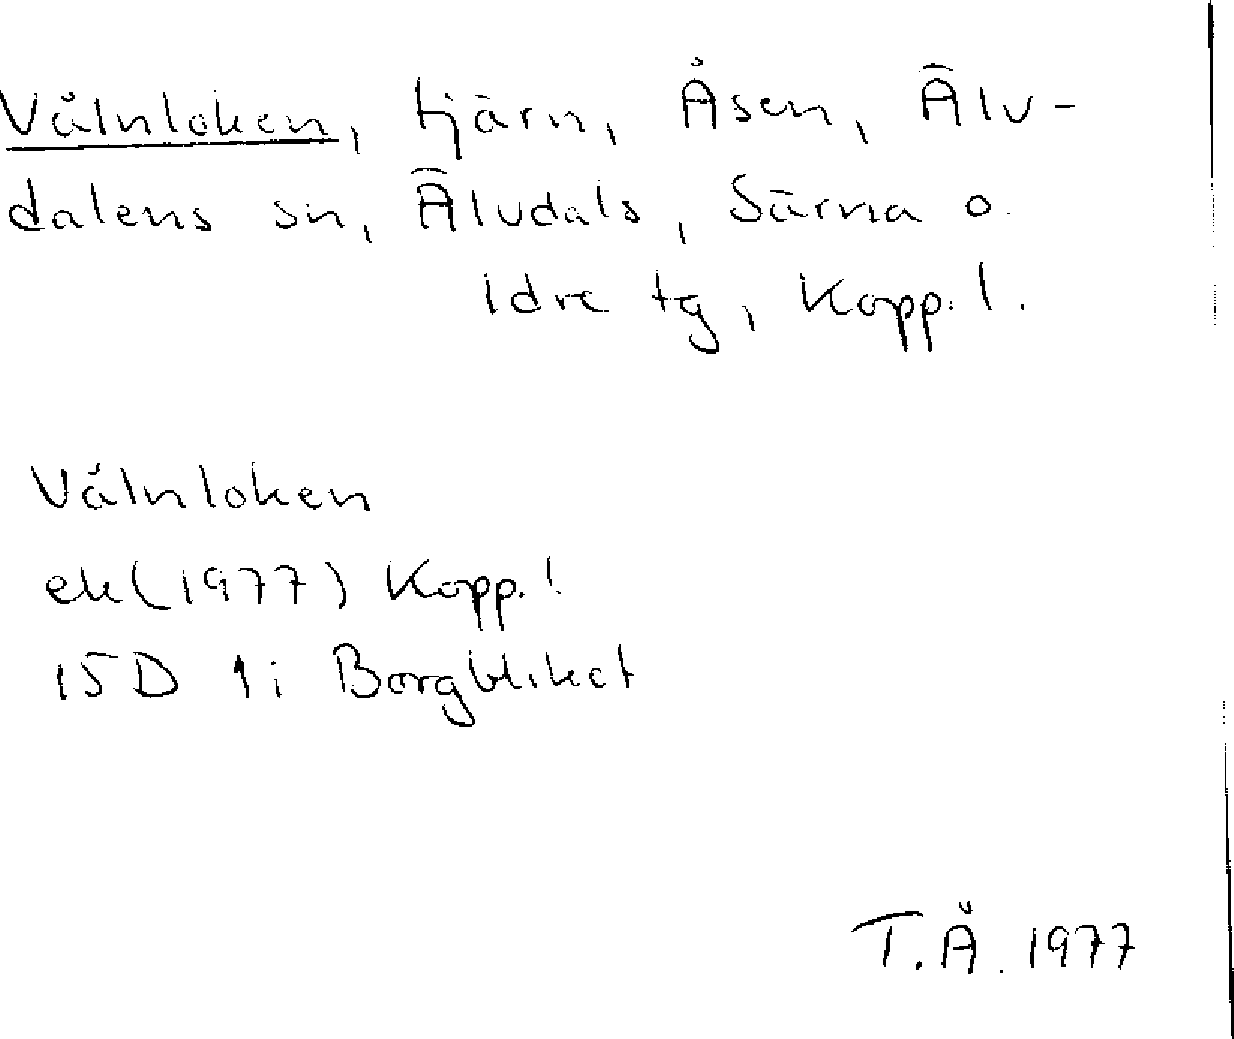 Vålnloken, tjärn, Åsen, Älv-
dalens sn, Älvdals, Särna o.
idre tg, Kopp. l.
Vålnloken
ek (1977) Kopp. l
15D 1i Borgbliket
T.Å. 1977